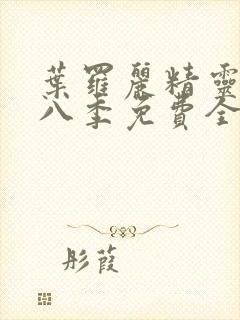 葉羅麗精靈
八季免費全
彤葭